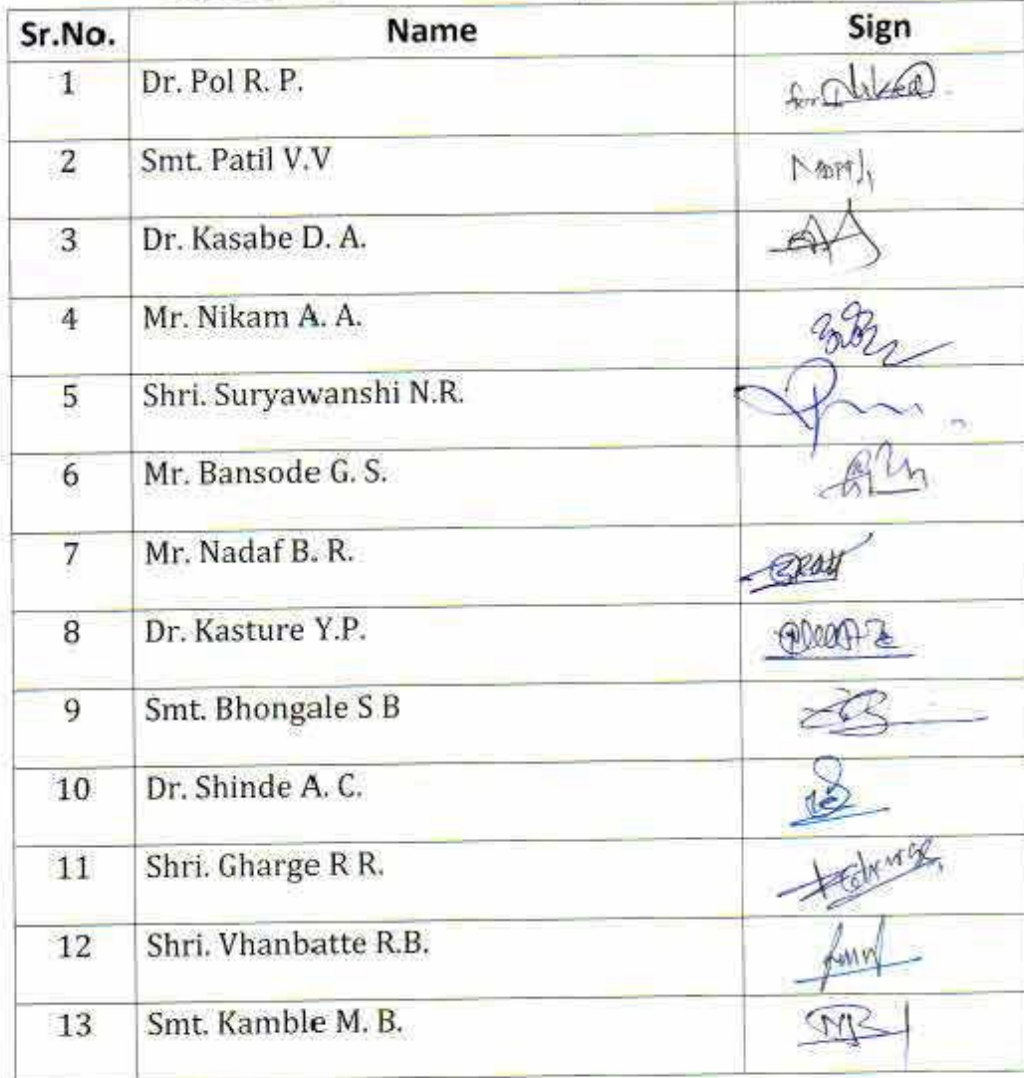 Sr.No. Name Sign
1 Dr. Pol R. P.
2 Smt. Patil V.V
3 Dr. Kasabe D. A.
4 Mr. Nikam A. A.
5 Shri. Suryawanshi N.R.
6 Mr. Bansode G. S.
7 Mr. Nadaf B. R.
8 Dr. Kasture Y.P.
9 Smt. Bhongale S B
10 Dr. Shinde A. C.
11 Shri. Gharge R R.
12 Shri. Vhanbatte R.B.
13 Smt. Kamble M. B.